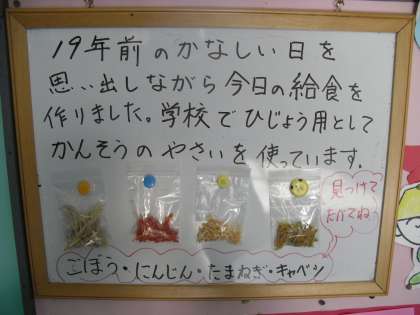 19年前のかなしい日を
思い出しながら今日の給食を
作りました。学校でひじょう用として
かんそうのやさいを使っています.
見つけて
たべてね
ごぼう・にんじん・たまねぎ・キャベツ